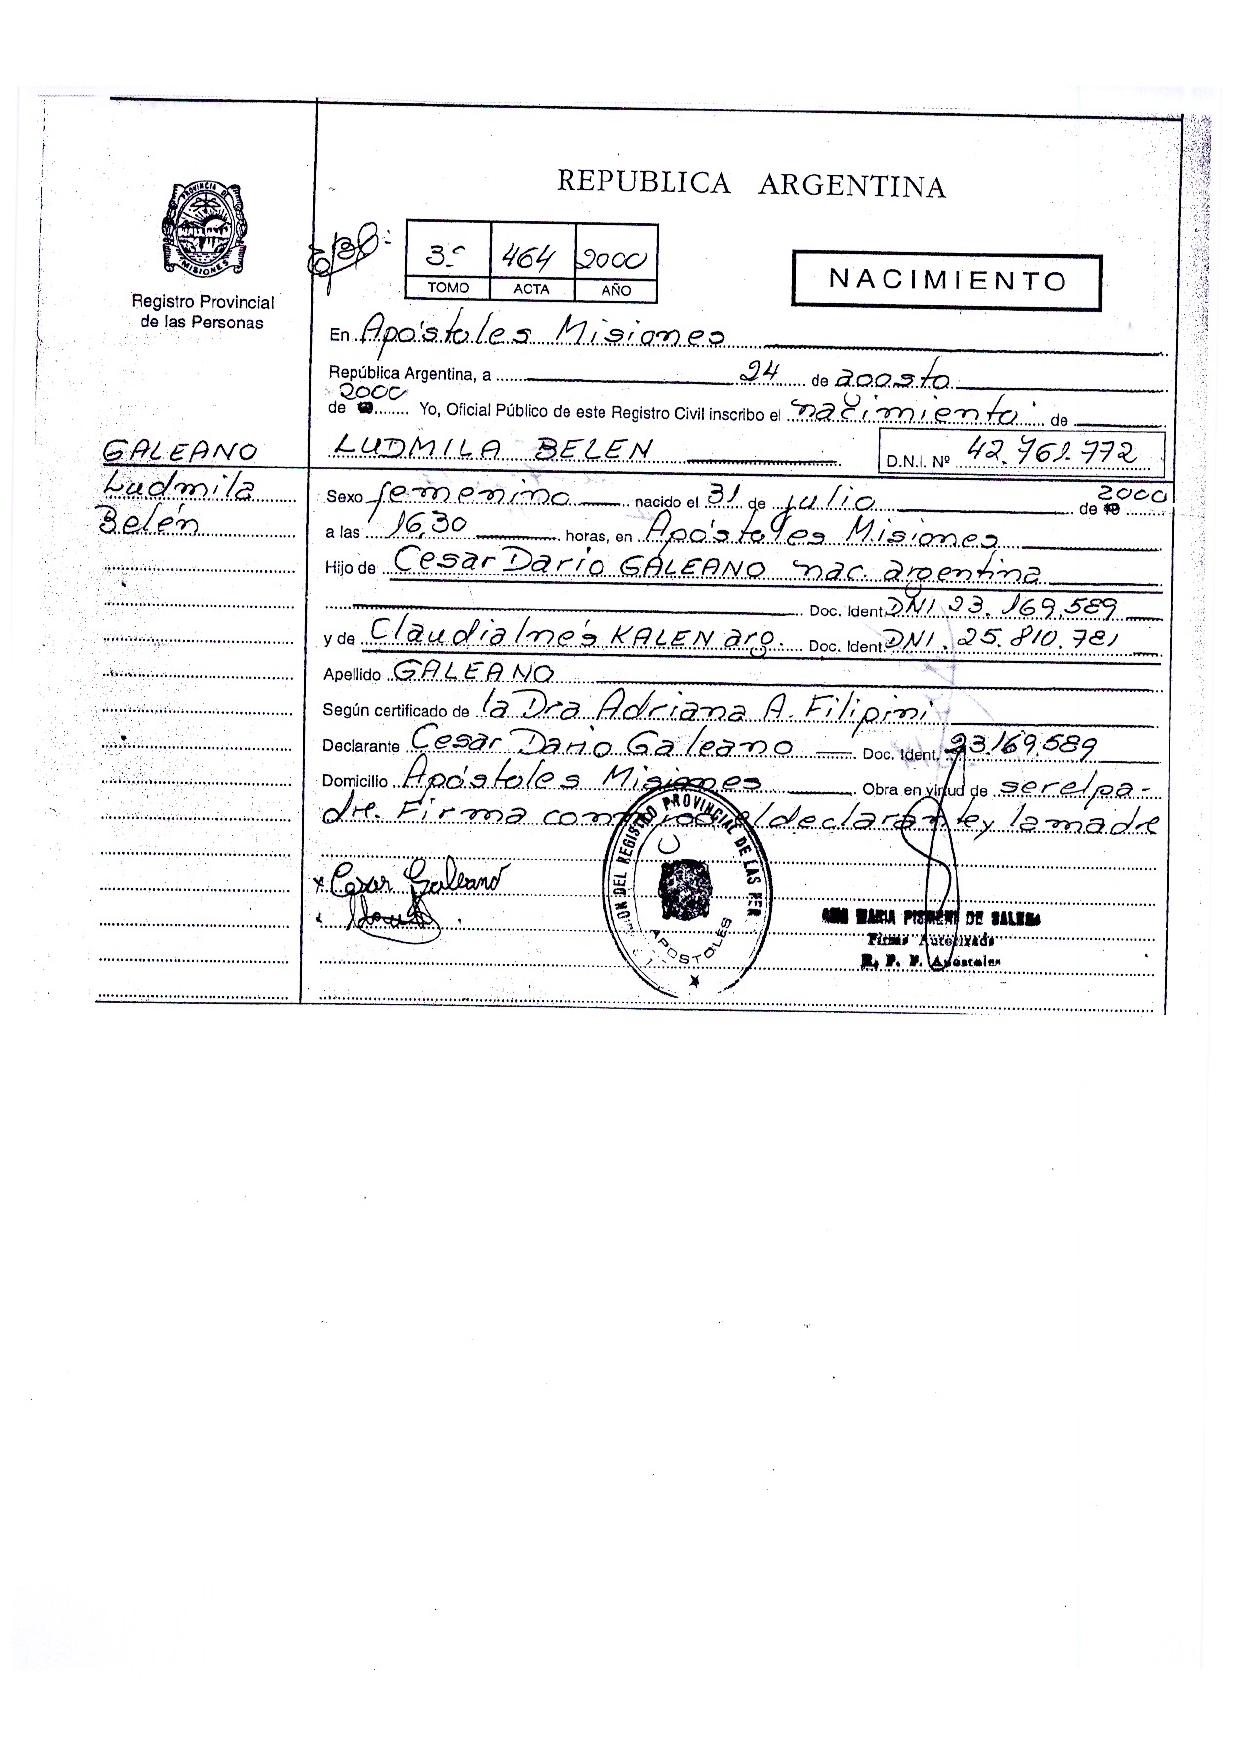 REPUBLICA ARGENTINA
PROVINCIA DE MISIONES
Registro Provincial
de las Personas
3º 464 2000
TOMO ACTA AÑO
NACIMIENTO
En Apóstoles Misiones
República Argentina, a 24 de agosto
2000
de Yo, Oficial Público de este Registro Civil inscribo el nacimiento de
GALEANO
Ludmila
Belén
LUDMILA BELEN D.N.I. Nº 42.761.772
Sexo femenino nacido el 31 de julio de 2000
a las 16,30 horas, en Apóstoles Misiones
Hijo de Cesar Darío GALEANO nac. argentina
Doc. Ident. DNI 23.169.589
y de Claudia Inés KALEN arg. Doc. Ident. DNI. 25.810.781
Apellido GALEANO
Según certificado de la Dra Adriana A. Filipini
Declarante Cesar Dario Galeano Doc. Ident. 23.169.589
Domicilio Apóstoles Misiones Obra en virtud de ser el pa-
dre. Firma el declarante y la madre
x Cesar Galeano
DEL REGISTRO PROVINCIAL DE LAS PER
APOSTOLES
MARIA DE
Firma Autorizada
R. P. P. Apostoles